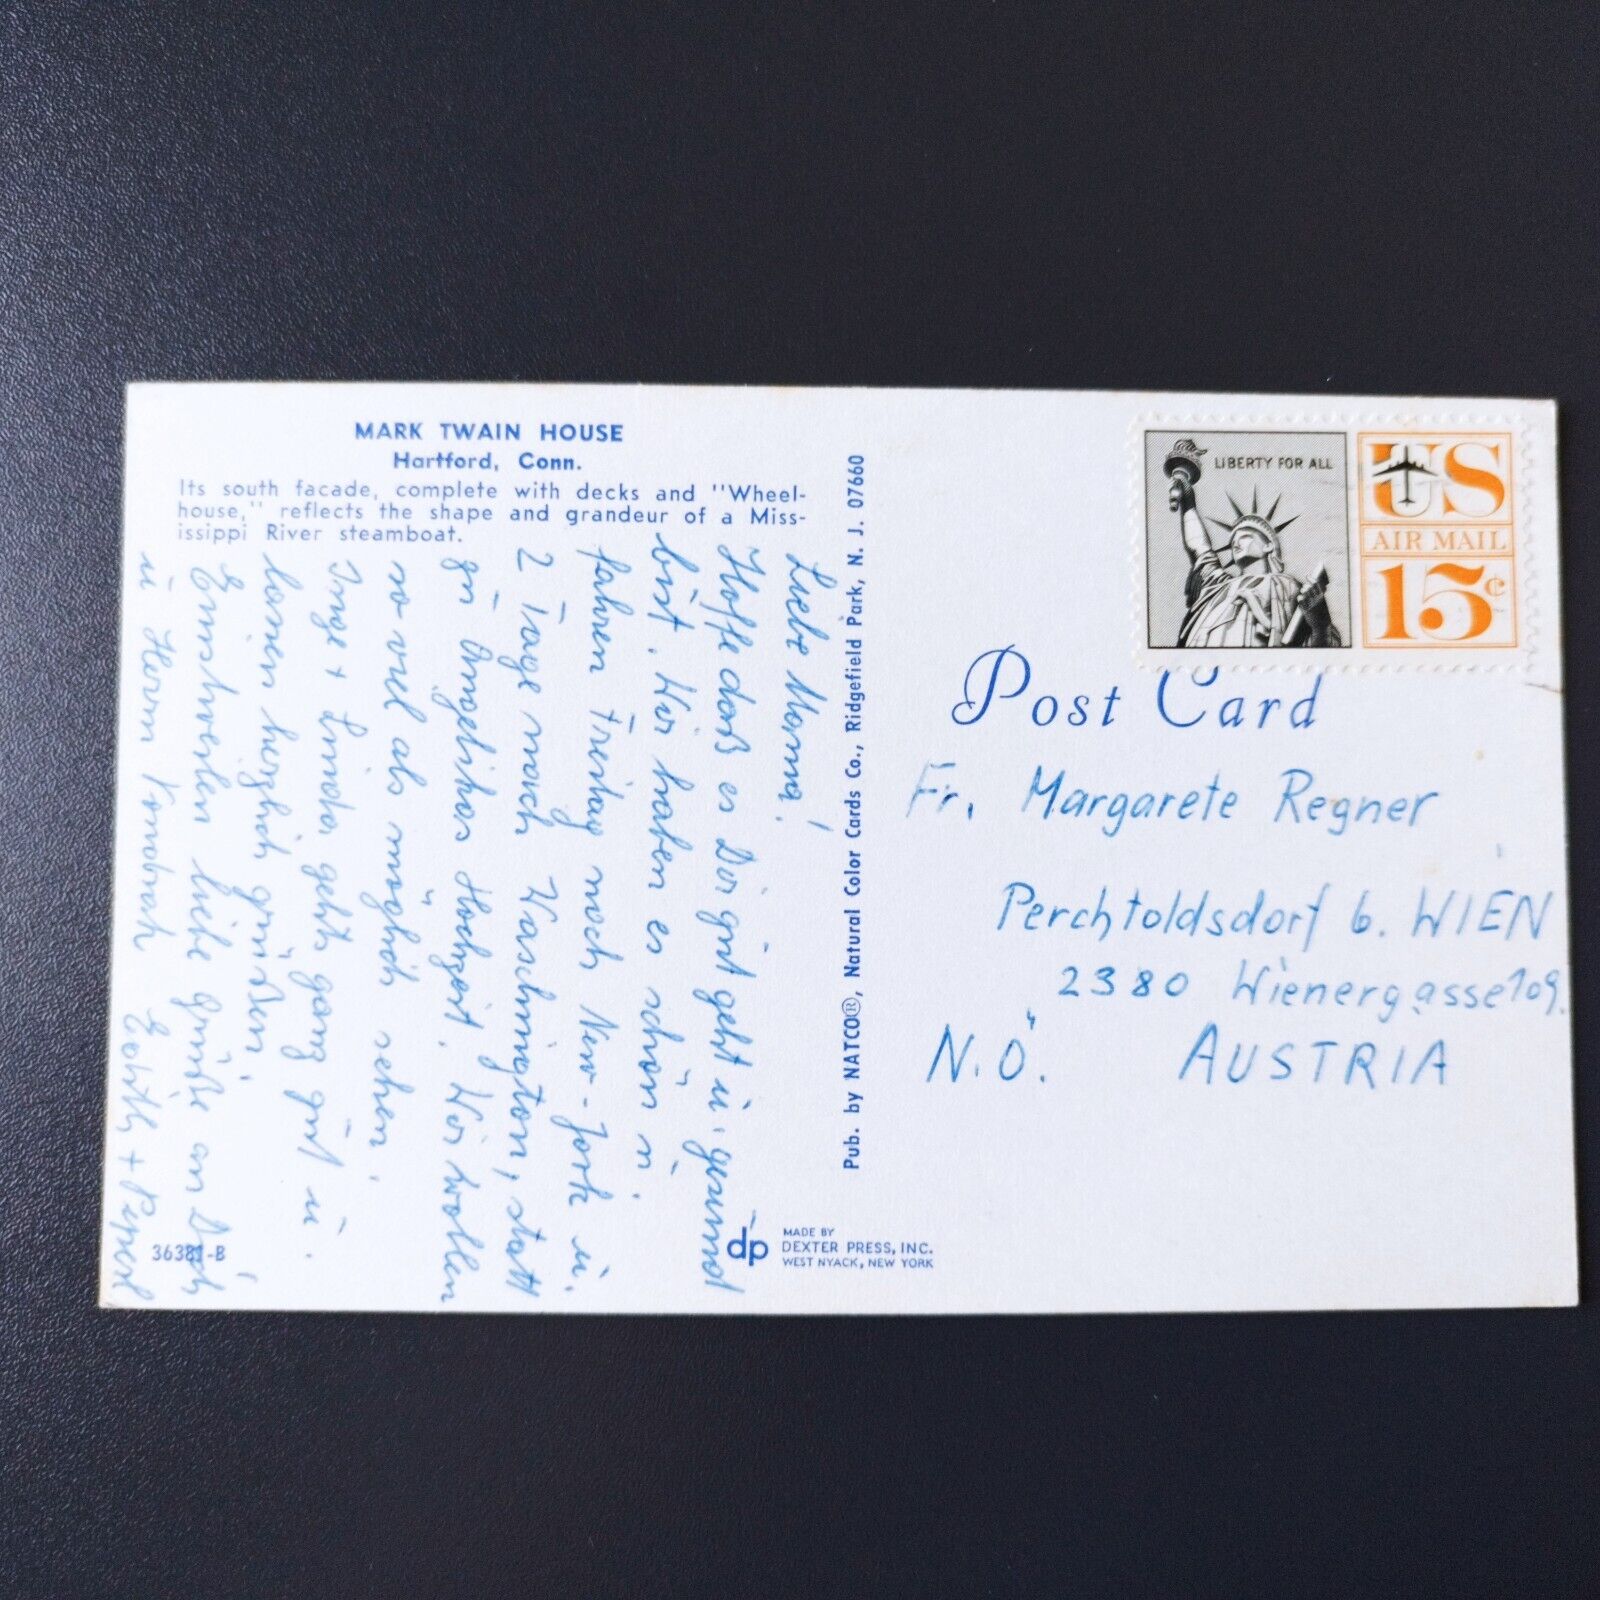 MARK TWAIN HOUSE
Hartford, Conn.
Its south facade, complete with decks and "Wheel-
house," reflects the shape and grandeur of a Miss-
issippi River steamboat.
Liebe Mama!
Hoffe daß es Dir gut geht u. gesund
bist. Wir haben es schön u.
fahren Freitag noch New-York u.
2 Tage nach Waschington, statt
zu Angelikas Hochzeit. Wir wollen
so viel als möglich sehen.
Inge + Linda geht ganz gut u.
lassen herzlich grüßen.
Einstweilen liebe Grüße an Dich
u Herrn Edith +
36381-B
dp
MADE BY
DEXTER PRESS, INC.
WEST NYACK, NEW YORK
Pub. by NATCO®, Natural Color Cards Co., Ridgefield Park, N. J. 07660
LIBERTY FOR ALL
US
AIR MAIL
15c
Post Card
Fr. Margarete Regner
Perchtoldsdorf b. WIEN
2380 Wienergasse 109.
N.Ö. AUSTRIA